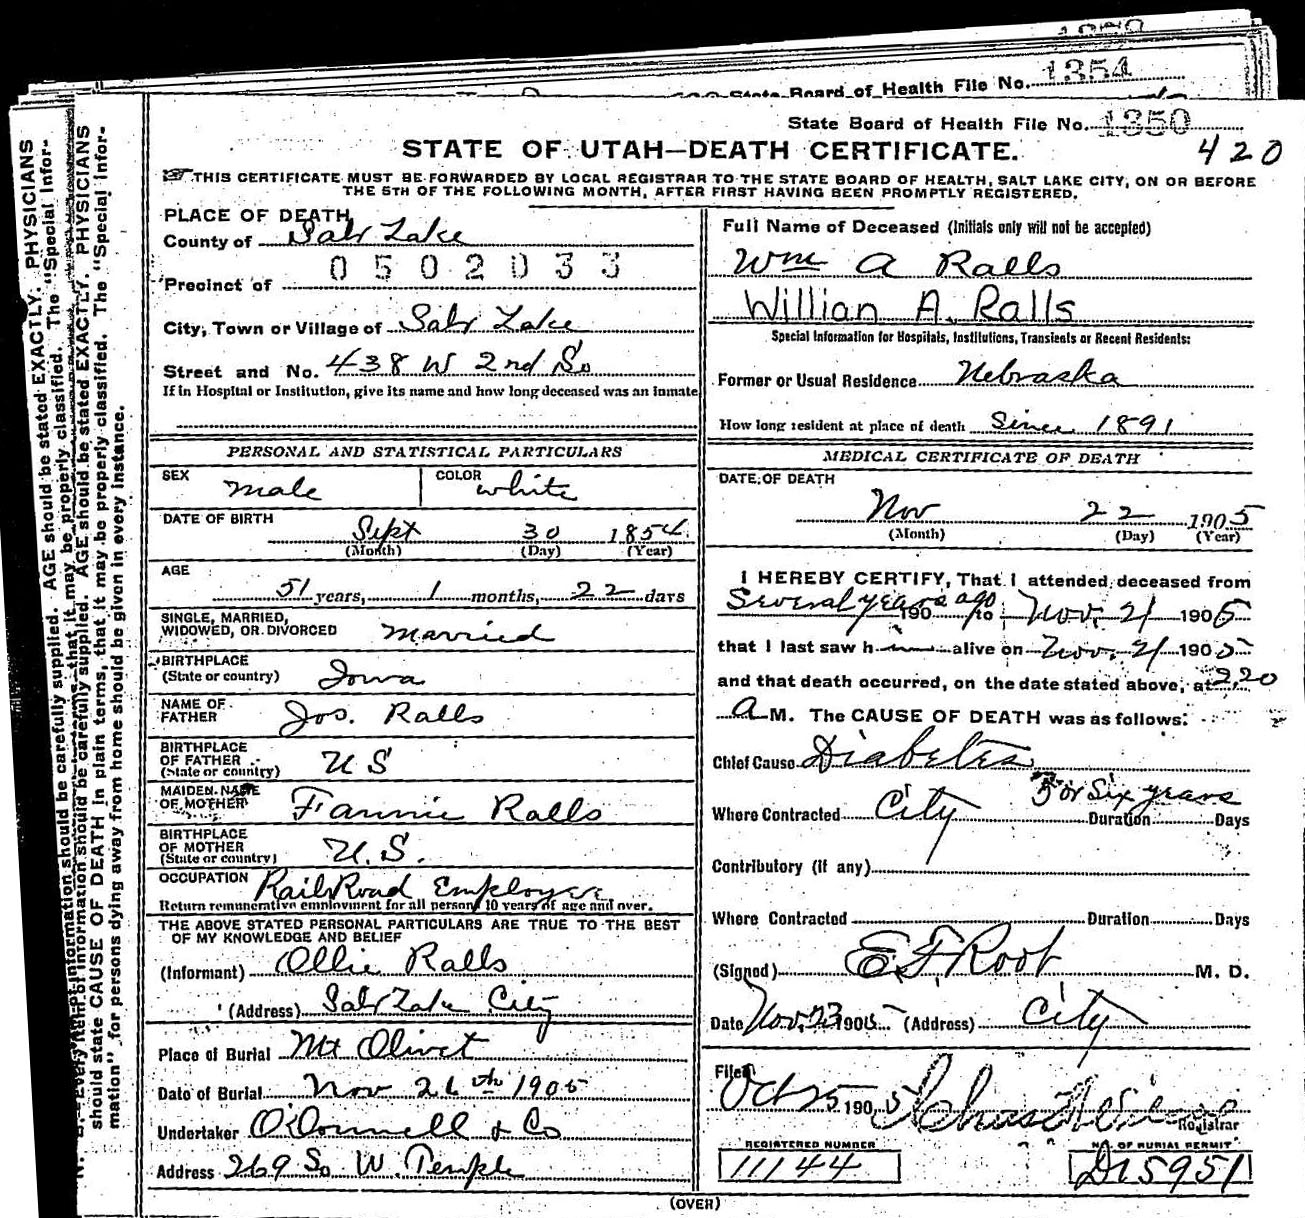 1354
State Board of Health File No.
State Board of Health File No. 1350
420
STATE OF UTAH—DEATH CERTIFICATE.
THIS CERTIFICATE MUST BE FORWARDED BY LOCAL REGISTRAR TO THE STATE BOARD OF HEALTH, SALT LAKE CITY, ON OR BEFORE
THE 5TH OF THE FOLLOWING MONTH, AFTER FIRST HAVING BEEN PROMPTLY REGISTERED.
PLACE OF DEATH
County of Salt Lake
0502033
Precinct of
City, Town or Village of Salt Lake
Street and No. 438 W 2nd So
If in Hospital or Institution, give its name and how long deceased was an inmate
PERSONAL AND STATISTICAL PARTICULARS
SEX male COLOR white
DATE OF BIRTH
Sept 30 1854
(Month) (Day) (Year)
AGE
51 years, 1 months, 22 days
SINGLE, MARRIED,
WIDOWED, OR DIVORCED married
BIRTHPLACE
(State or country) Iowa
NAME OF
FATHER Jos. Ralls
BIRTHPLACE
OF FATHER
(State or country) U S
MAIDEN NAME
OF MOTHER Fannie Ralls
BIRTHPLACE
OF MOTHER
(State or country) U.S.
OCCUPATION RailRoad Employee
Return remunerative employment for all persons 10 years of age and over.
THE ABOVE STATED PERSONAL PARTICULARS ARE TRUE TO THE BEST
OF MY KNOWLEDGE AND BELIEF
(Informant) Ollie Ralls
(Address) Salt Lake City
Place of Burial Mt Olivet
Date of Burial Nov 26th 1905
Undertaker O'Donnell & Co
Address 269 So W. Temple
Full Name of Deceased (Initials only will not be accepted)
Wm A Ralls
Willian A. Ralls
Special Information for Hospitals, Institutions, Transients or Recent Residents:
Former or Usual Residence Nebraska
How long resident at place of death Since 1891
MEDICAL CERTIFICATE OF DEATH
DATE OF DEATH
Nov 22 1905
(Month) (Day) (Year)
I HEREBY CERTIFY, That I attended deceased from
Several years ago 190 to Nov. 21 1905
that I last saw h im alive on Nov. 21 1905
and that death occurred, on the date stated above, at 2.20
A M. The CAUSE OF DEATH was as follows:
Chief Cause Diabetes
5 or Six years
Where Contracted City Duration Days
Contributory (if any)
Where Contracted Duration Days
(Signed) E. F. Root M. D.
Date Nov. 23 1905 (Address) City
Filed
Oct 25 1905
Registrar
REGISTERED NUMBER
11144
NO. OF BURIAL PERMIT
D15951
(OVER)
N. B.—Every item of information should be carefully supplied. AGE should be stated EXACTLY. PHYSICIANS
should state CAUSE OF DEATH in plain terms, that it may be properly classified. The "Special Infor-
mation" for persons dying away from home should be given in every instance.